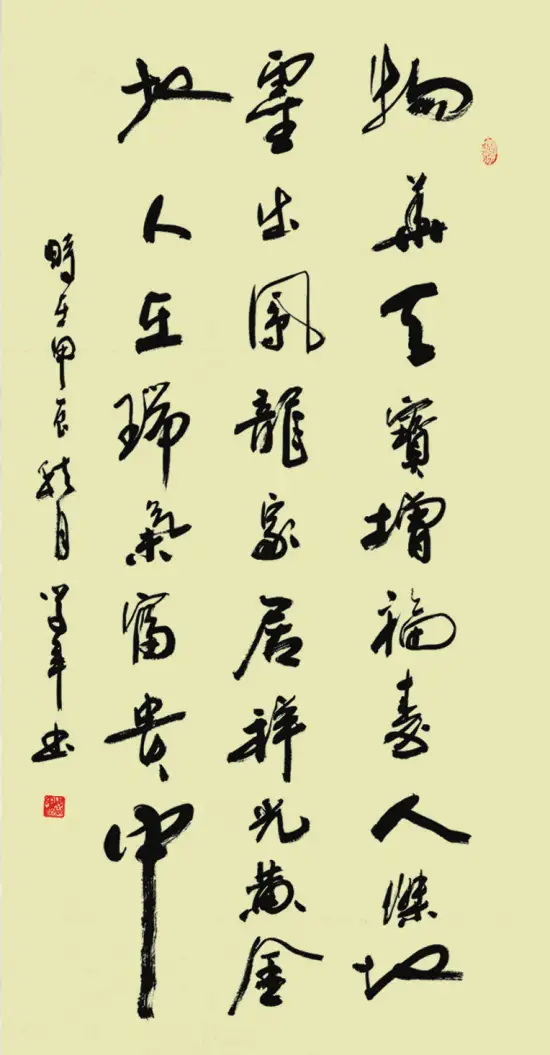 物華天寶增福壽人傑地
靈出鳳龍家居祥光黄金
地人在瑞氣富貴中
時在甲辰秋月 書